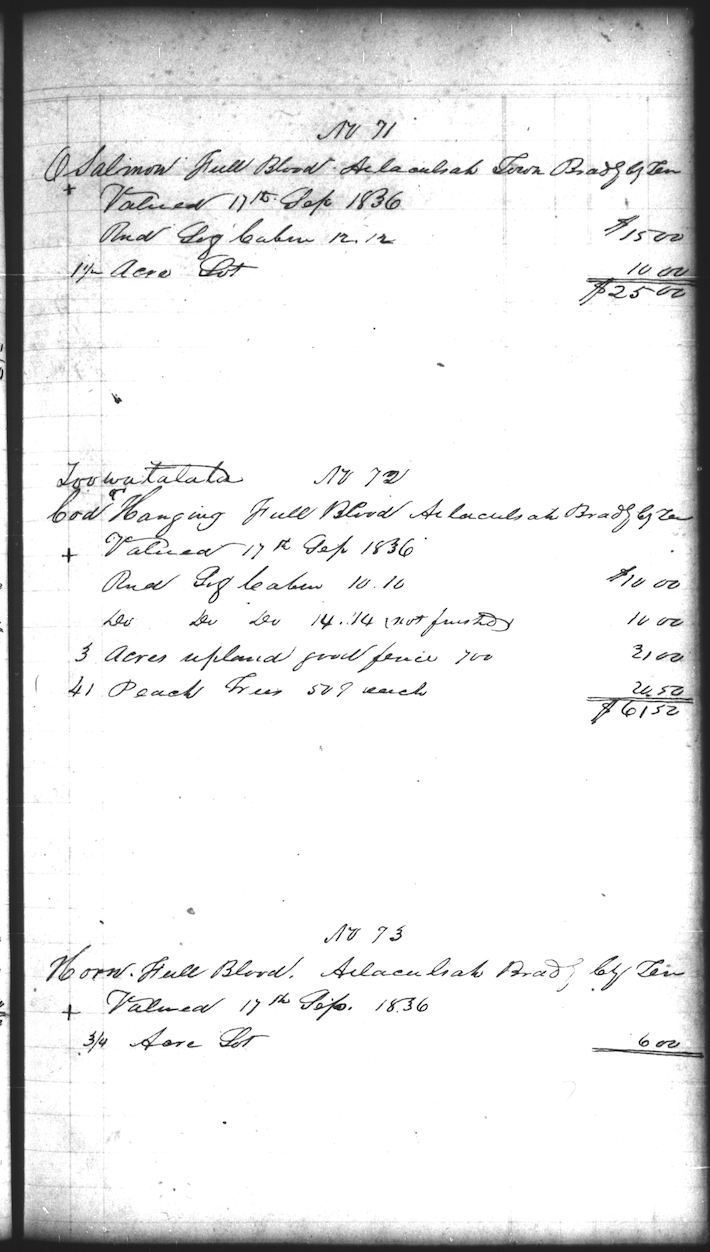 No 71
O Salmon Full Blood Ailaculsah Town Bradly Cy Ten
+ Valued 17th Sep 1836
Rnd Log Cabin 12.12 $15 00
Acre Lot 10 00
$25 00
Toowatalata No 72
or
Cod Hanging Full Blood Ailaculsah Bradly Cy Ten
+ Valued 17th Sep 1836
Rnd Log Cabin 10.10 $10 00
Do Do Do 14.14 (not finished) 10 00
3 Acres upland good fence 700 21 00
41 Peach Trees 50 each 20 50
$61 50
No 73
Horn. Full Blood. Ailaculsah Brad Cty Ten
+ Valued 17th Sep. 1836
3/4 Acre Lot 6 00